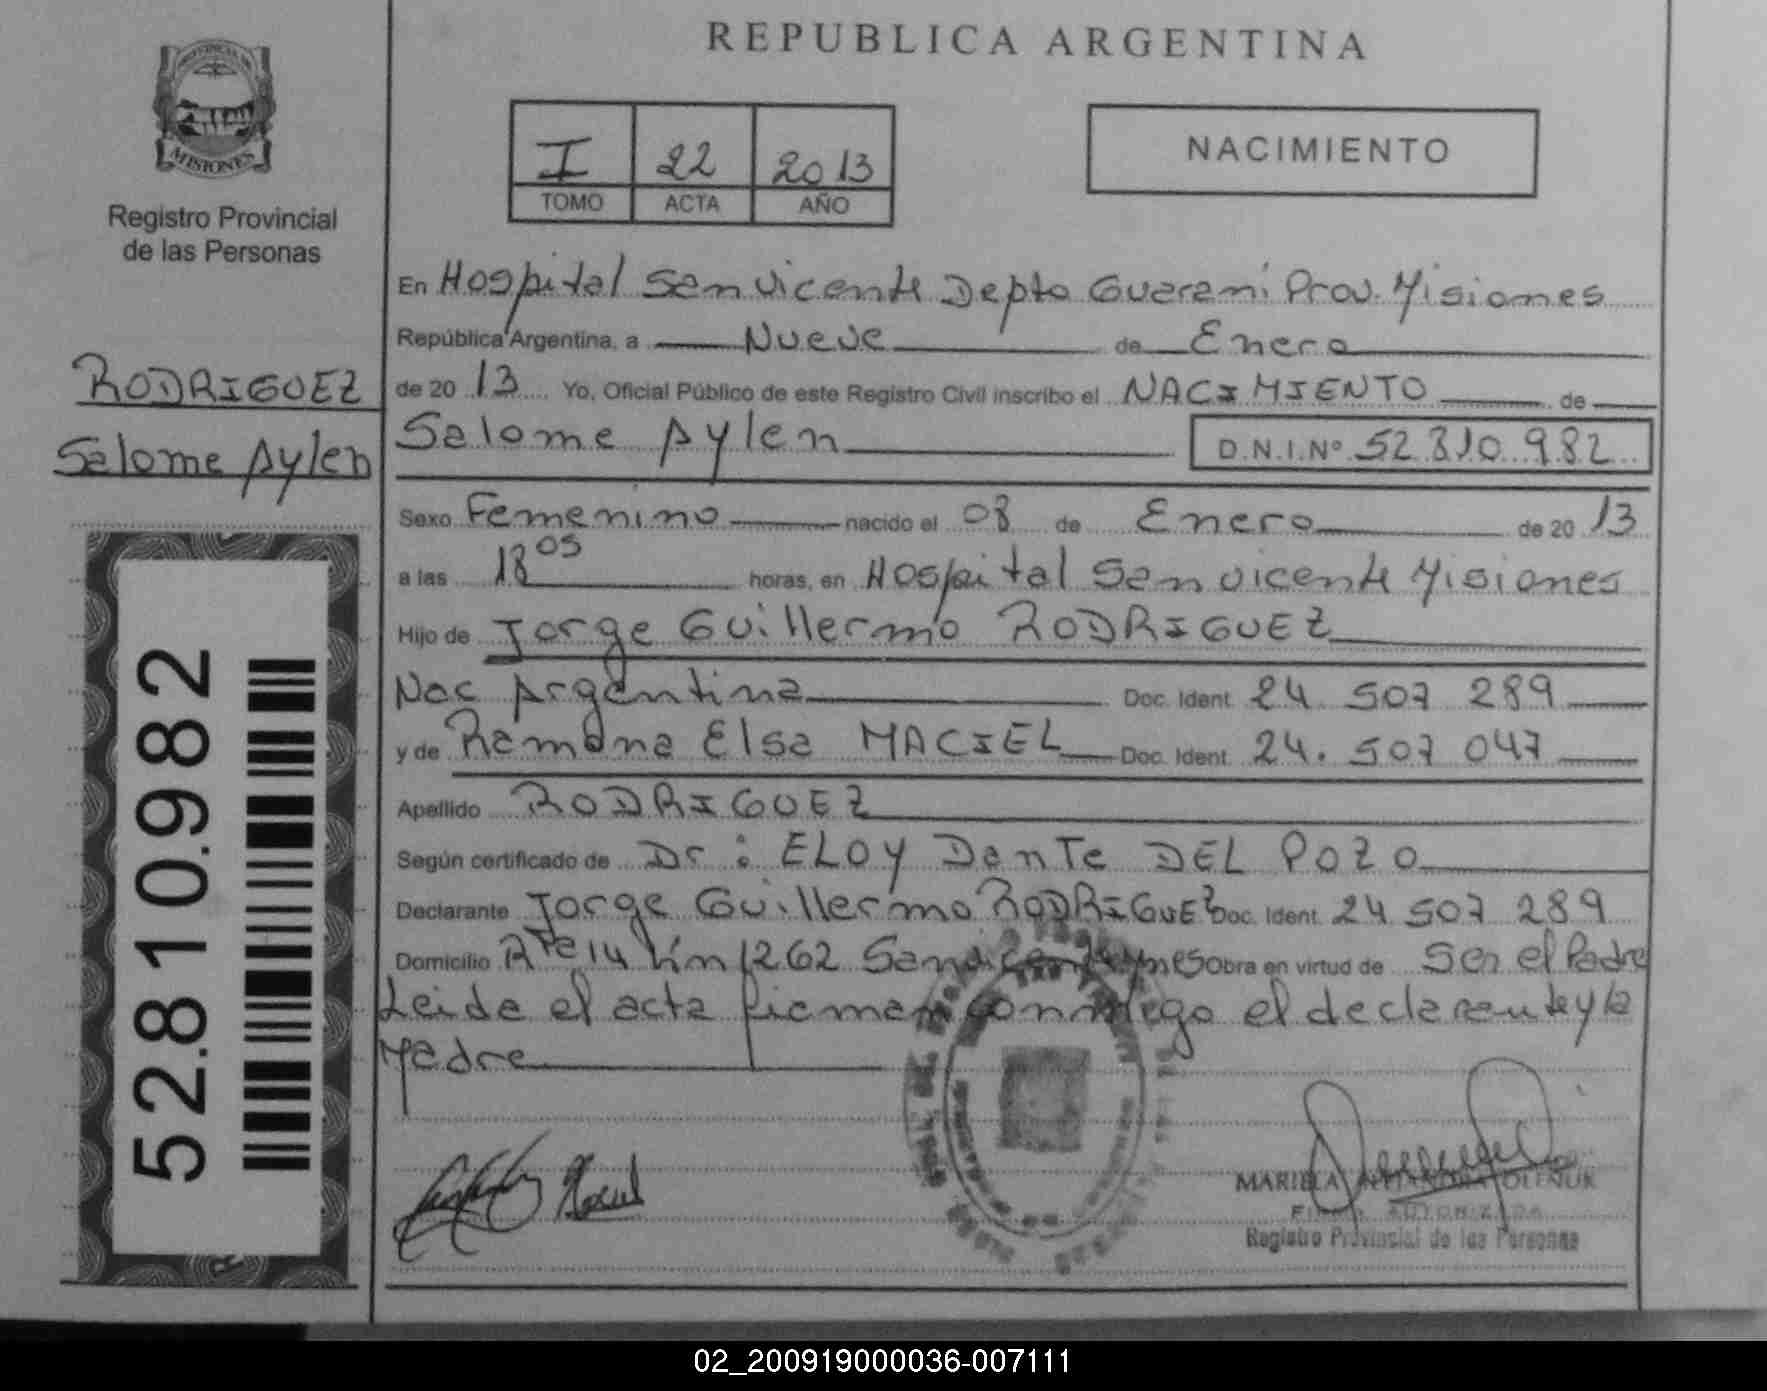 REPUBLICA ARGENTINA
PROVINCIA DE
MISIONES
Registro Provincial
de las Personas
I 22 2013
TOMO ACTA AÑO
NACIMIENTO
RODRIGUEZ
Salome Aylen
52.810.982
En Hospital San Vicente Depto Guarani Prov. Misiones
República Argentina, a Nueve de Enero
de 20 13 Yo, Oficial Público de este Registro Civil inscribo el NACIMIENTO de
Salome Aylen D.N.I.Nº 52.810.982
Sexo Femenino nacido el 08 de Enero de 20 13
a las 18 05 horas, en Hospital San Vicente Misiones
Hijo de Jorge Guillermo RODRIGUEZ
Nac Argentina Doc. Ident. 24.507 289
y de Ramona Elsa MACIEL Doc. Ident. 24.507 047
Apellido RODRIGUEZ
Según certificado de Dr: ELOY Dante DEL POZO
Declarante Jorge Guillermo RODRIGUEZ Doc. Ident. 24 507 289
Domicilio Rte 14 km 1262 San Vicente Mnes Obra en virtud de Ser el Padre
Leida el acta firman conmigo el declarante y la
Madre
MARIELA ALEJANDRA OLENUK
FIRMA AUTORIZADA
Registro Provincial de las Personas
02_200919000036-007111